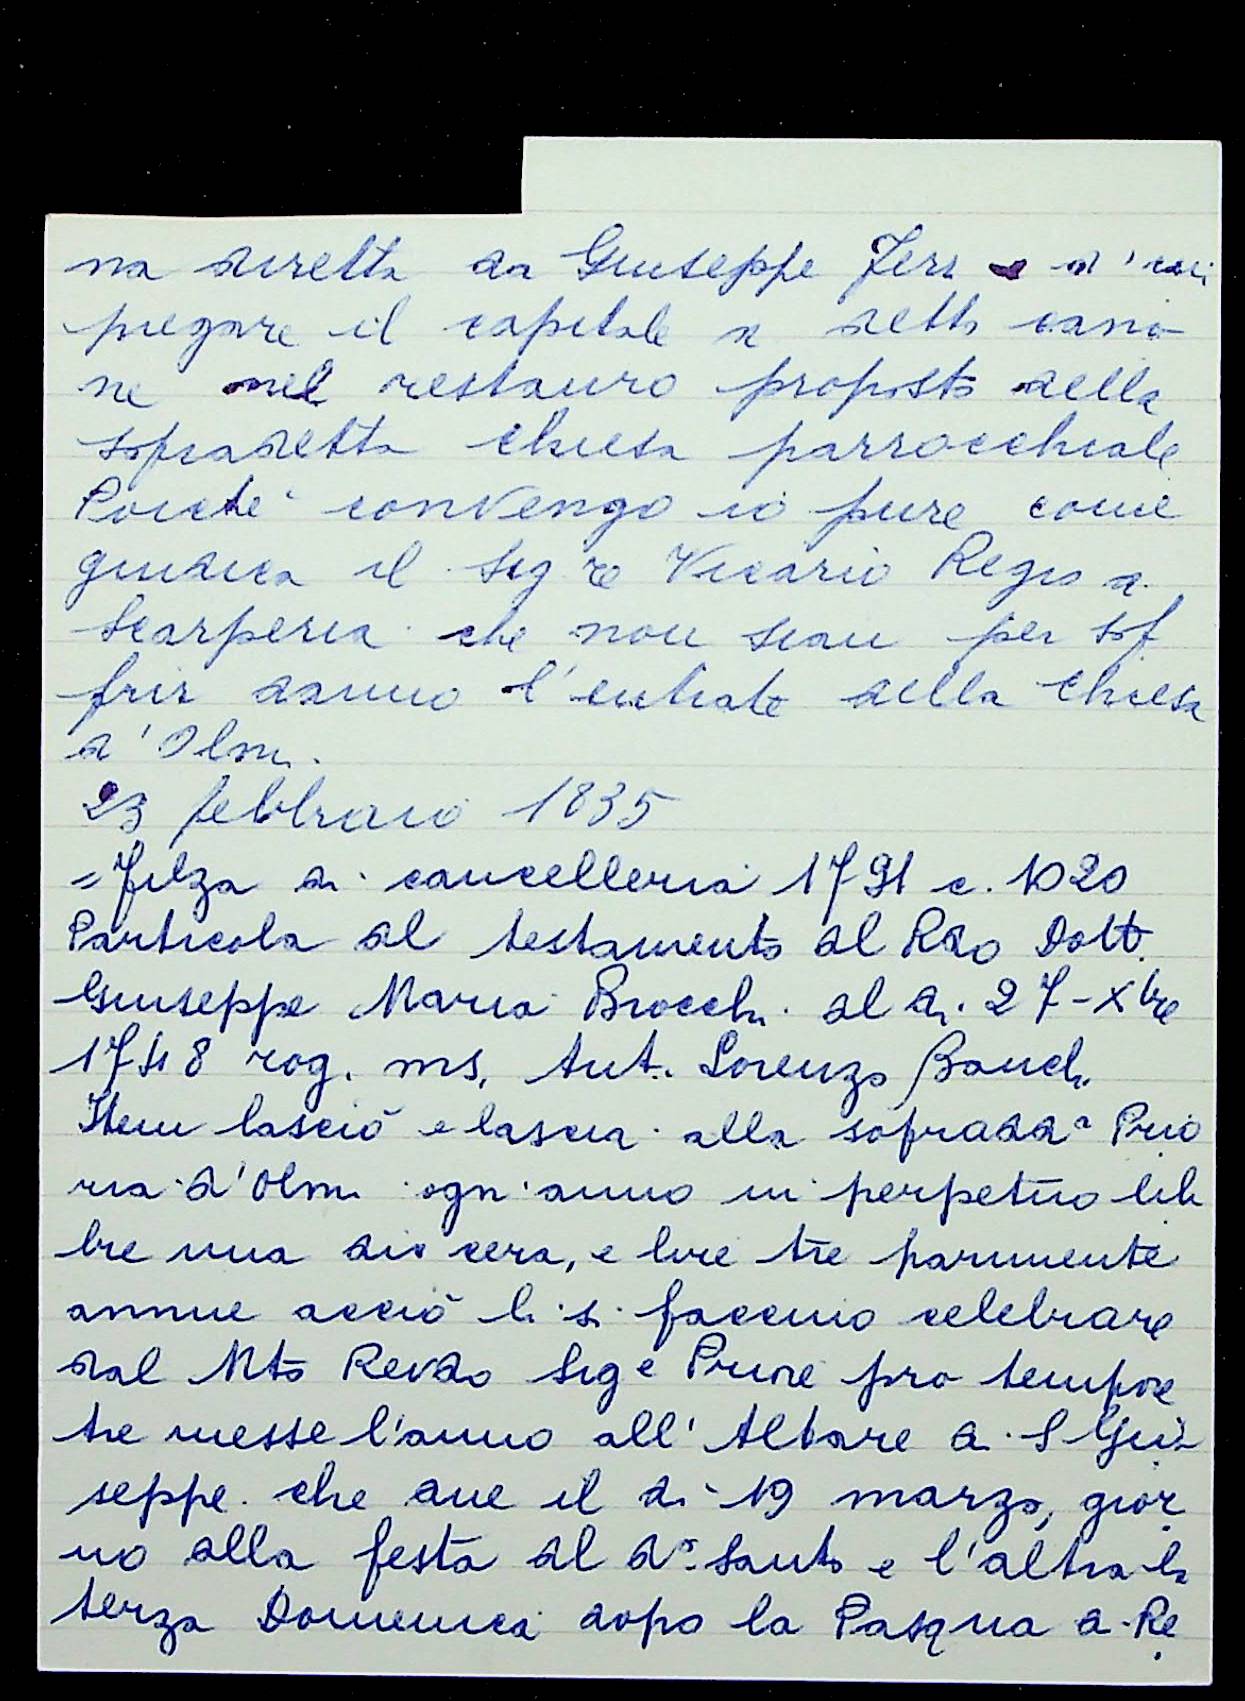 na diretta da Giuseppe Feri e d'im
piegare il capitale di detto cano-
ne nel restauro proposto della
sopradetta chiesa parrocchiale
Poiché convengo io pure come
giudica il Sig re Vicario Regio di
Scarperia che non sian per sof
frir danno l'entrate della chiesa
d'Olmi.
23 febbraio 1835
= Filza di cancelleria 1791 c. 1020
Particola del testamento del Rdo Dott.
Giuseppe Maria Brocchi del di 27-Xbre
1748 rog. ms. Ant. Lorenzo Banchi
Item lasciò e lascia alla sopradda Prio
ria d'Olmi ogn'anno in perpetuo lib
bre una di cera, e lire tre parimente
annue acciò li si faccino celebrare
dal Mto Revdo Sig e Priore pro tempore
tre messe l'anno all'Altare di S Giu
seppe che due il di 19 marzo, gior
no della festa del do Santo e l'altra la
terza Domenica dopo la Pasqua di Re